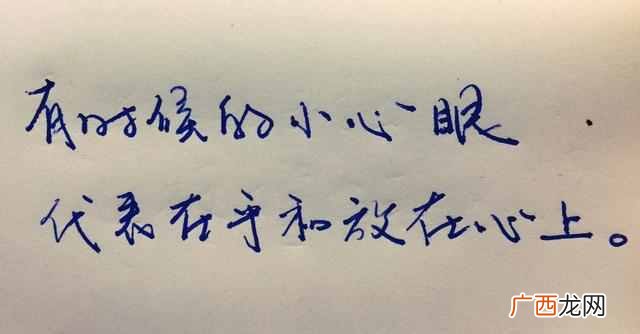 有时候的小心眼
代表在乎和放在心上。
广西龙网